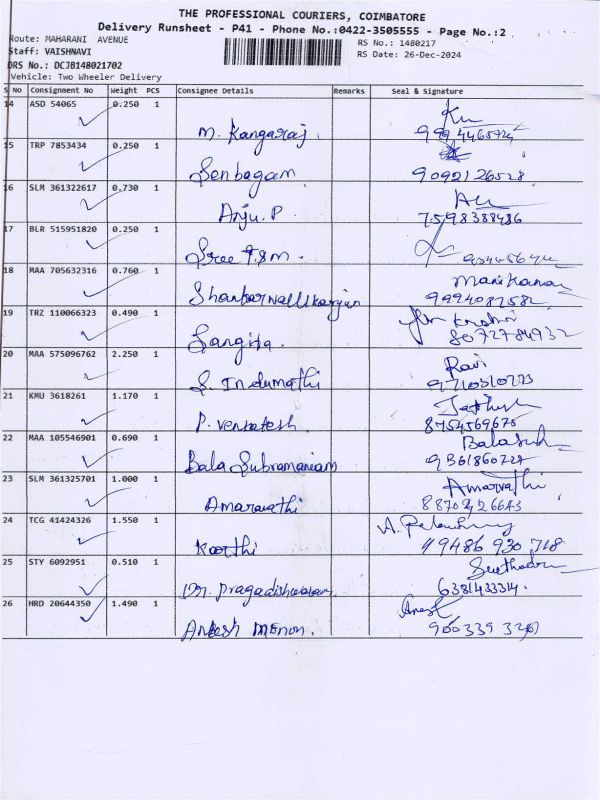 THE PROFESSIONAL COURIERS, COIMBATORE
Delivery Runsheet - P41 - Phone No.:0422-3505555 - Page No.:2
Route: MAHARANI AVENUE
RS No.: 1480217
Staff: VAISHNAVI
RS Date: 26-Dec-2024
DRS No.: DCJB148021702
Vehicle: Two Wheeler Delivery
S No Consignment No Weight PCS Consignee Details Remarks Seal & Signature
14 ASD 54065 0.250 1
M. Kangaraj
15 TRP 7853434 0.250 1
Senbagam 9092126528
16 SLM 361322617 0.730 1
Anju.P 7598388486
17 BLR 515951820 0.250 1
Sree T.S.M.
18 MAA 705632316 0.760 1 Manikanan
9994087582
19 TRZ 110066323 0.490 1
Sangita. 8072784932
20 MAA 575096762 2.250 1 Ravi
S. Indumathi
21 KMU 3618261 1.170 1
P. Venkatesh. 8754569675
22 MAA 105546901 0.690 1
Bala Subramaniam 9361860727
23 SLM 361325701 1.000 1 Amarvathi
Amaravathi
24 TCG 41424326 1.550 1
Karthi 49486 930 718
25 STY 6092951 0.510 1
6381433314.
26 HRD 20644350 1.490 1
Menon.